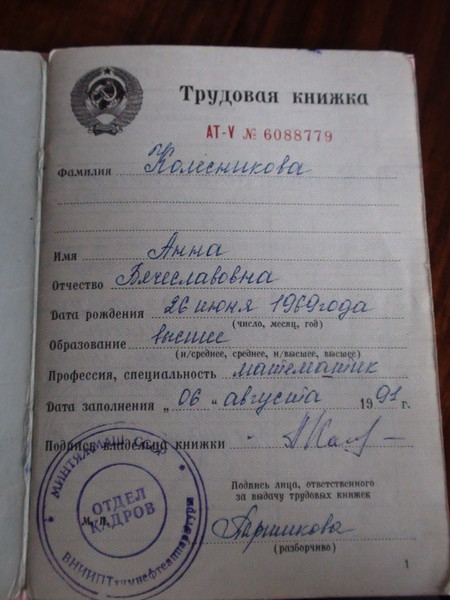 Трудовая книжка
AT-V № 6088779
Фамилия Колесникова
Имя Анна
Отчество Вячеславовна
Дата рождения 26 июня 1969 года
(число, месяц, год)
Образование высшее
(н/среднее, среднее, н/высшее, высшее)
Профессия, специальность математик
Дата заполнения „ 06 “ августа 1991 г.
Подпись владельца книжки
МИНТЯЖМАШ СССР
ОТДЕЛ
КАДРОВ
М. П.
ВНИИПТхимнефтеаппаратуры
Подпись лица, ответственного
за выдачу трудовых книжек
Паршикова
(разборчиво)
1